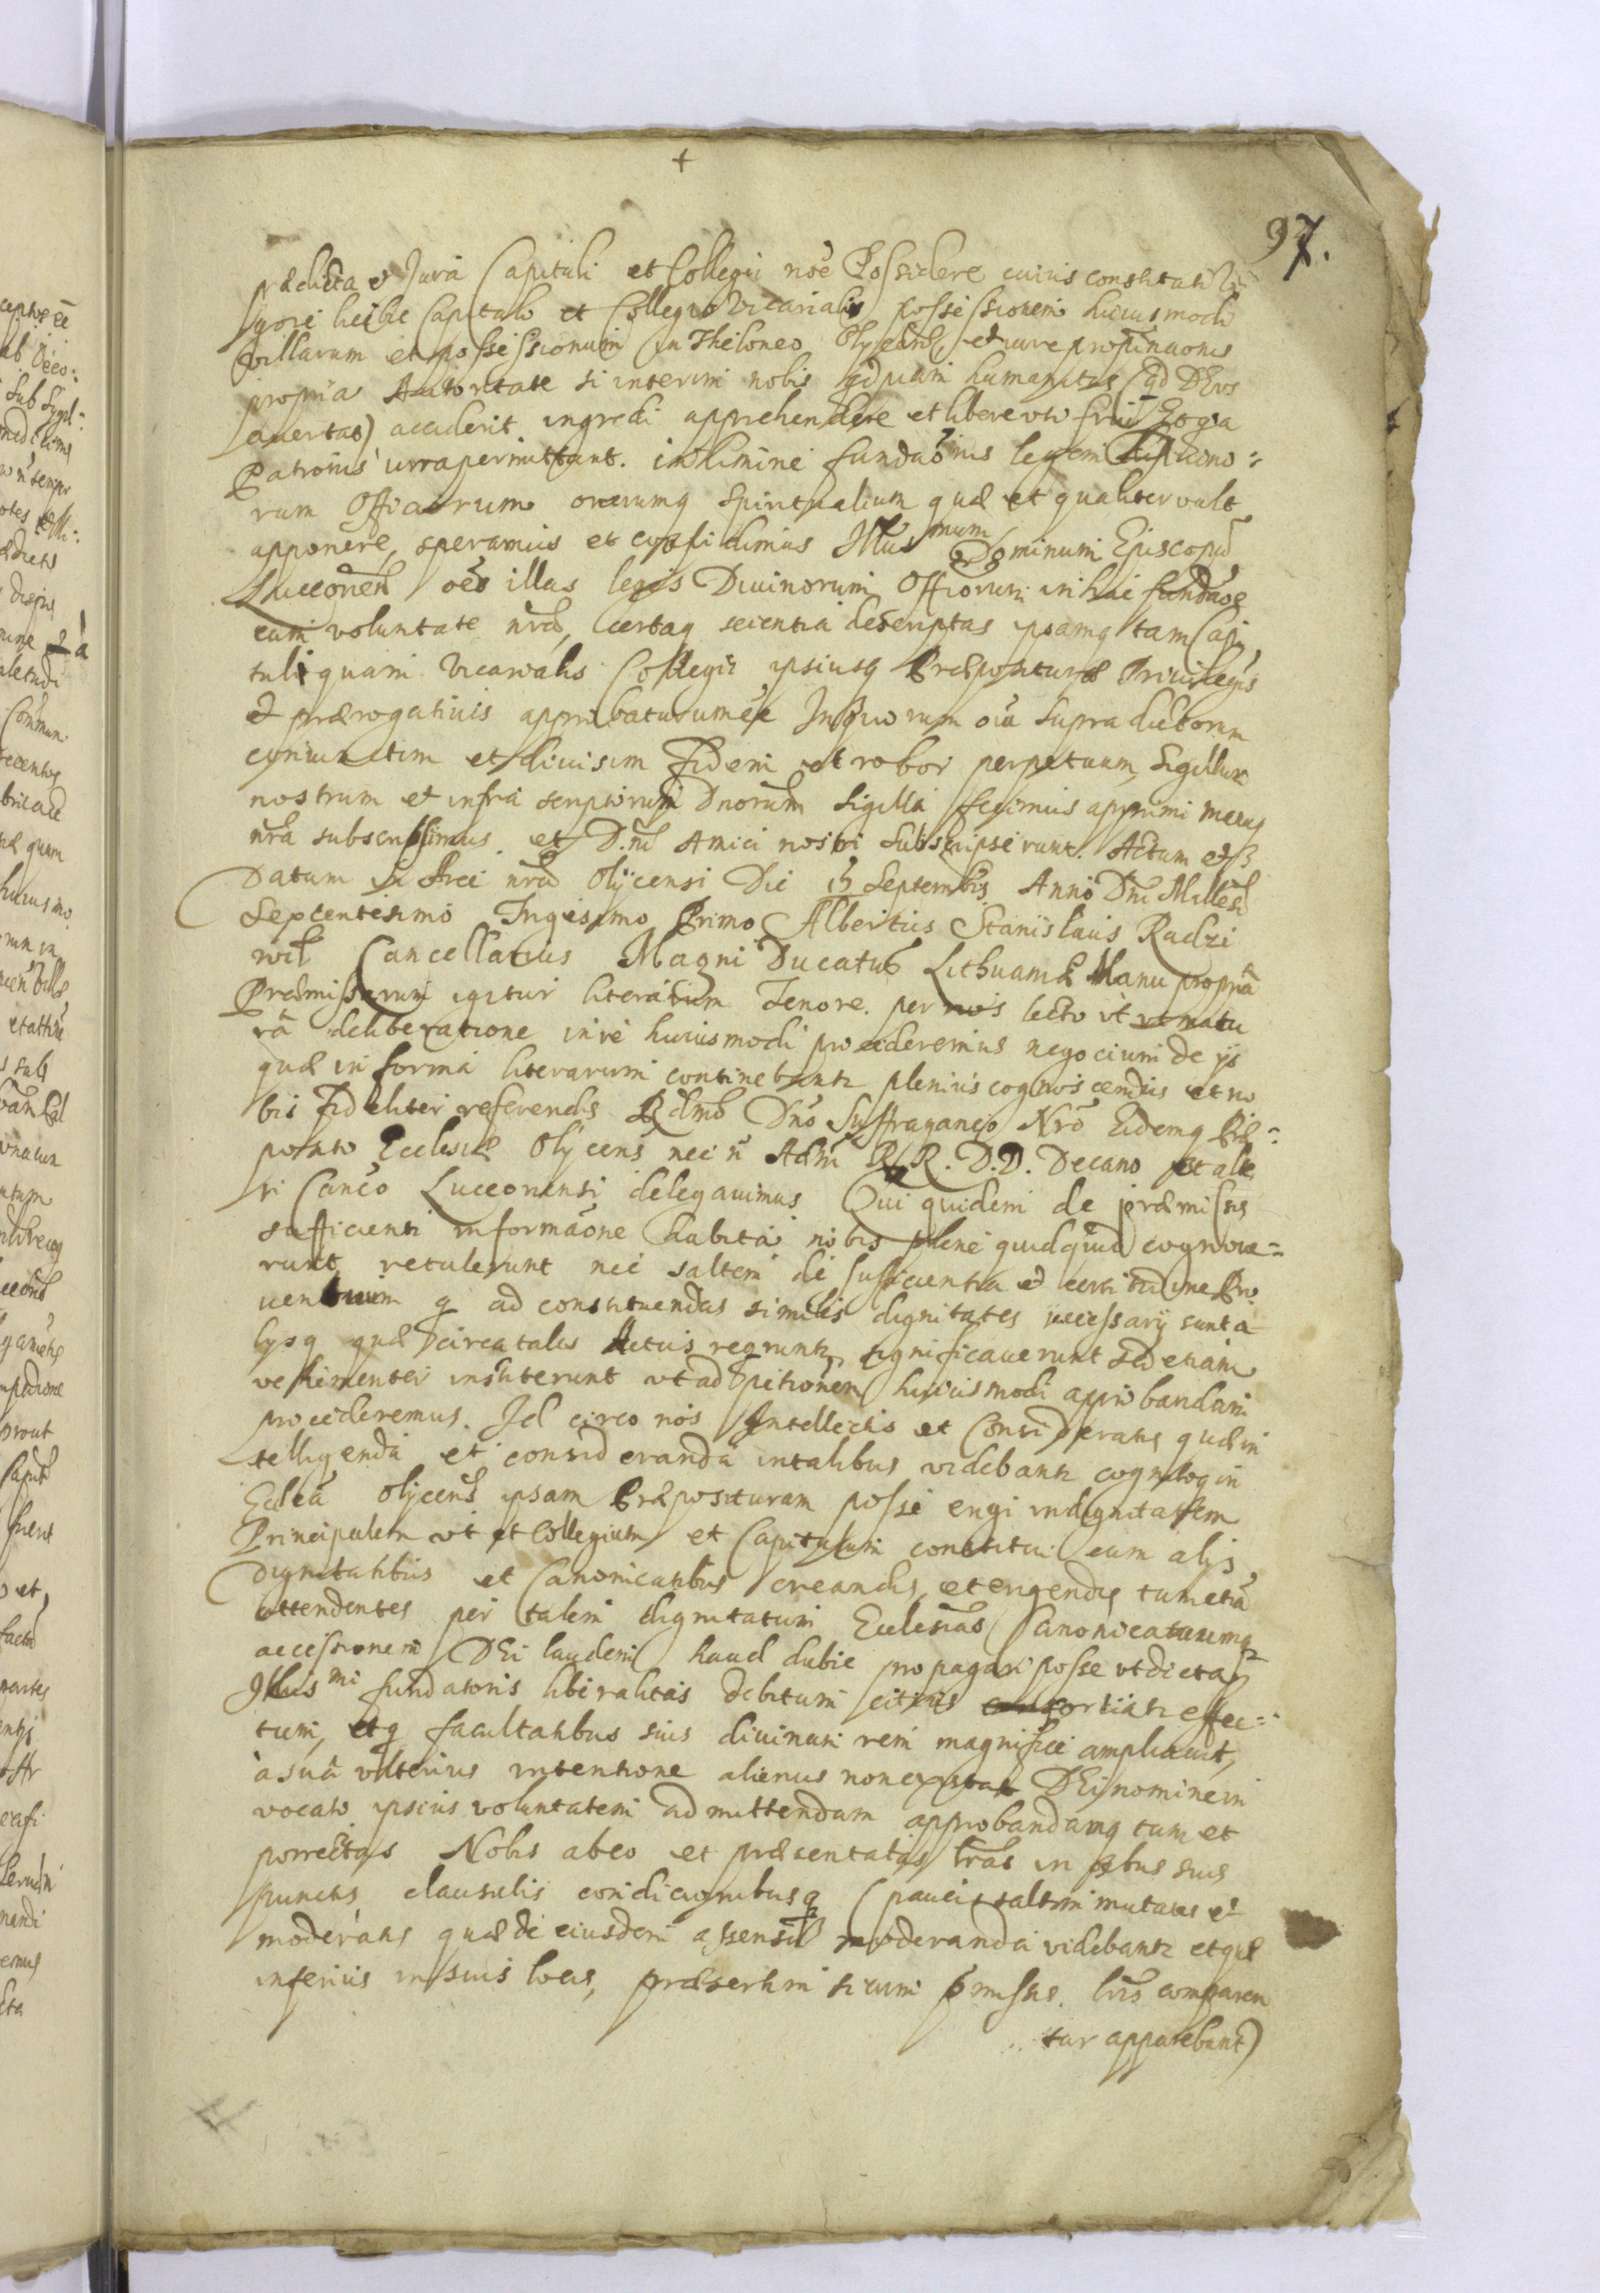 +
97.
prædicta et Jura Capituli et Collegii noe Possidere cuius constitutõ
gore licebit Capitulo et Collegio Vicarialis possessionem huiusmodi
villarum et possessionum in Theloneo Olycen et iure propinaonis
propria Autoritate si interim nobis qdpiam humanitus (qd DEus
auertat) acciderit ingredi apprehendere et libere uti frui
Patronis permittant. in limine fundaõnis legem Diuino:
rum Officiorum onerumq Spiritualium quæ et qualiter vult
apponere, speramus et confidimus Illus mum Dominum Episcopũ
Luceoneñ oẽs illas leges Diuinorum Officiorum in hac fundaõe
cum voluntate nrã, certaq scientia descriptas ipsamq tam Capi
tuli quam Vicarialis Collegii ipsiusq Præposituræ Priuilegijs
et prærogatiuis approbaturum eẽ In quorum oiũ supra dictorum
coniunctim et diuisim fidem et robor perpetuum, Sigillum
nostrum et infra scriptorum Dnorum sigilla fecimus apprimi manuq
nrã subscripsimus et D.ni Amici nostri subscripserunt. Actum et
Datum in Arce nrã Olijcensi Die 15 Septembris Anno Dni Millesi
Sexcentesimo Trigesimo Primo Albertus Stanislaus Radzi
wił Cancellarius Magni Ducatus Lithuaniæ Manu propriâ
Præmissarum igitur literarum Tenore per nos lecto ut matu
râ deliberatione in re huiusmodi procederemus negocium de ijs
quæ in forma literarum continebantr plenius cognoscendis et no
bis fideliter referendis Rdmo Dno Suffraganeo Nrõ Eidemq Præ=
posito Ecclesiæ Olijcens nec ñ Adm R.R. D.D. Decano et alte
ri Canco Luceonensi delegauimus Qui quidem de præmissis
sufficienti informaõne habita nobis plene quidquid cognoue=
runt retulerunt nec saltem de sufficientia et certitudine Pro
uentuum q ad constituendas similes dignitates necessarij sunt a
lysq quæ circa tales Actus regruntr significauerunt sed etiam
vehementer institerunt ut ad petitionem huiusmodi approbandam
procederemus. Id circo nos Intellectis et Consideratis quæ in
telligenda et consideranda in talibus videbantr cognitoq in
Eccleã Olijcens ipsam Præposituram posse erigi in dignitatem
Principalem ut et Collegium et Capitulum constitui cum alijs
Dignitatibus et Canonicatibus creandis et erigendis tum etiã
attendentes per talem dignitatum Ecclesias Canonicatuumq
accessionem DEi laudem haud dubie propagari posse ut dicta
Illus mi fundatoris liberalitas debitum citius sortiatr effec=
tum, etq facultatibus suis diuinam rem magnifice ampliauit,
à suâ ulterius intentione alienus non existat DEi nomine in
vocato ipsius voluntatem admittendam approbandamq tum et
porrectas Nobis ab eo et præsentatas lrãs in oibus suis
punctis clausulis condicionibusq (paucis saltem mutatis et
moderatis quæ de eiusdem assensu moderanda videbantr et quæ
inferius in suis locis, præsertim si cum pmissis lris comparen
tur apparebunt)